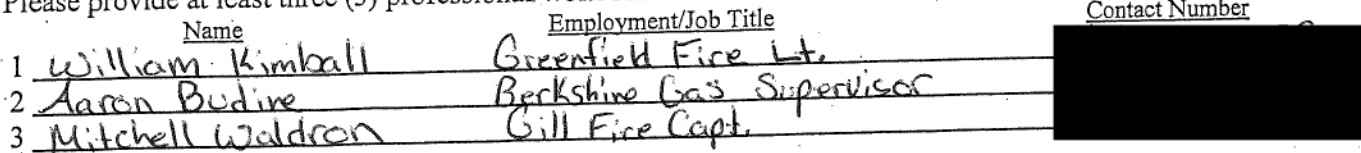 Please provide at least three (3) professional
Name Employment/Job Title Contact Number
1 William Kimball Greenfield Fire Lt.
2 Aaron Budine Berkshire Gas Supervisor
3 Mitchell Waldron Gill Fire Capt.